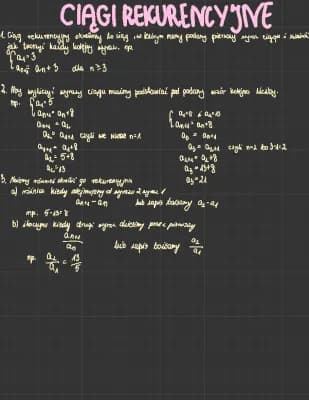 CIĄGI REKURENCYJNE
1. Ciąg rekurencyjny określony to ciąg, w którym mamy podany pierwszy wyraz ciągu i
jak tworzyć każdy kolejny wyraz. np.
a₁=3
aₙ+3 dla n≥3
2. Aby wyliczyć wyrazy ciągu musimy podstawiać pod podany wzór kolejne liczby.
np. a₁=5
aₙ₊₁=aₙ+8
aₙ₊₁=a₂
a₂=a₁₊₁ czyli n=1
a₁₊₁=a₁+8
a₂=5+8
a₂=13
aₙ₊₁=aₙ+8
a₃=aₙ₊₁
a₃=a₂₊₁ czyli n=2 bo 3-1=2
a₂₊₁=a₂+8
a₃=13+8
a₃=21
3. Możemy również określić go rekurencyjnie
a) różnica kiedy odejmujemy od wyrazu 2 wyraz 1
aₙ₊₁-aₙ lub zapis bazowy a₂-a₁
np. 5-13=8
b) iloczyn kiedy drugi wyraz dzielimy przez pierwszy
aₙ₊₁/aₙ lub zapis bazowy a₂/a₁
np. a₂/a₁=13/5